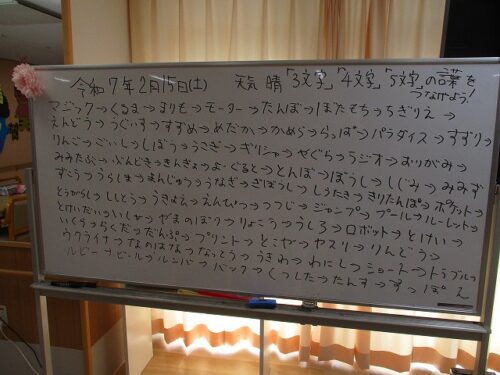 令和7年2月15日(土) 天気 晴 「3文字」「4文字」「5文字」の言葉を
つなげよう!
マジック→くるま→まりも→モーター→たんぼ→ぼたもち→ちぎりえ→
えんどう→うぐいす→すずめ→めだか→かめら→らっぱ→パラダイス→すずり→
りんご→ごいし→しぼう→うさぎ→ぎりしゃ→やぐら→ラジオ→おりがみ→
みみたぶ→ぶんどき→きんぎょ→よーぐると→とんぼ→ぼうし→しじみ→みみず→
ずこう→うらしま→まんじゅう→うなぎ→ぎぼうし→しらたき→きりたんぽ→ポケット→
とうがらし→ししとう→うきよえ→えんぴつ→つつじ→ジャンプ→プール→ルーレット→
とけいだい→いしゃ→やまのぼり→りょこう→うしろ→ロボット→とけい→
いくら→らくだ→だんぷ→プリント→とこや→ヤスリ→りんどう→
ウクライナ→なのはな→なっとう→うきわ→わにし→ショート→トラブル→
ルビー→ビール→ルンバ→バック→くつした→たんす→すっぽ